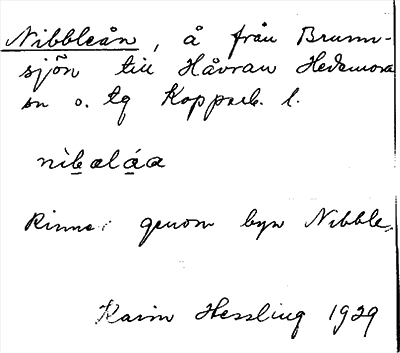 Nibbleån, å från Brunn-
sjön till Håvran Hedemora
sn o. tg Kopparb. l.
nìb̲əlá̲a
Rinner genom byn Nibble.
Karin Hessling 1929